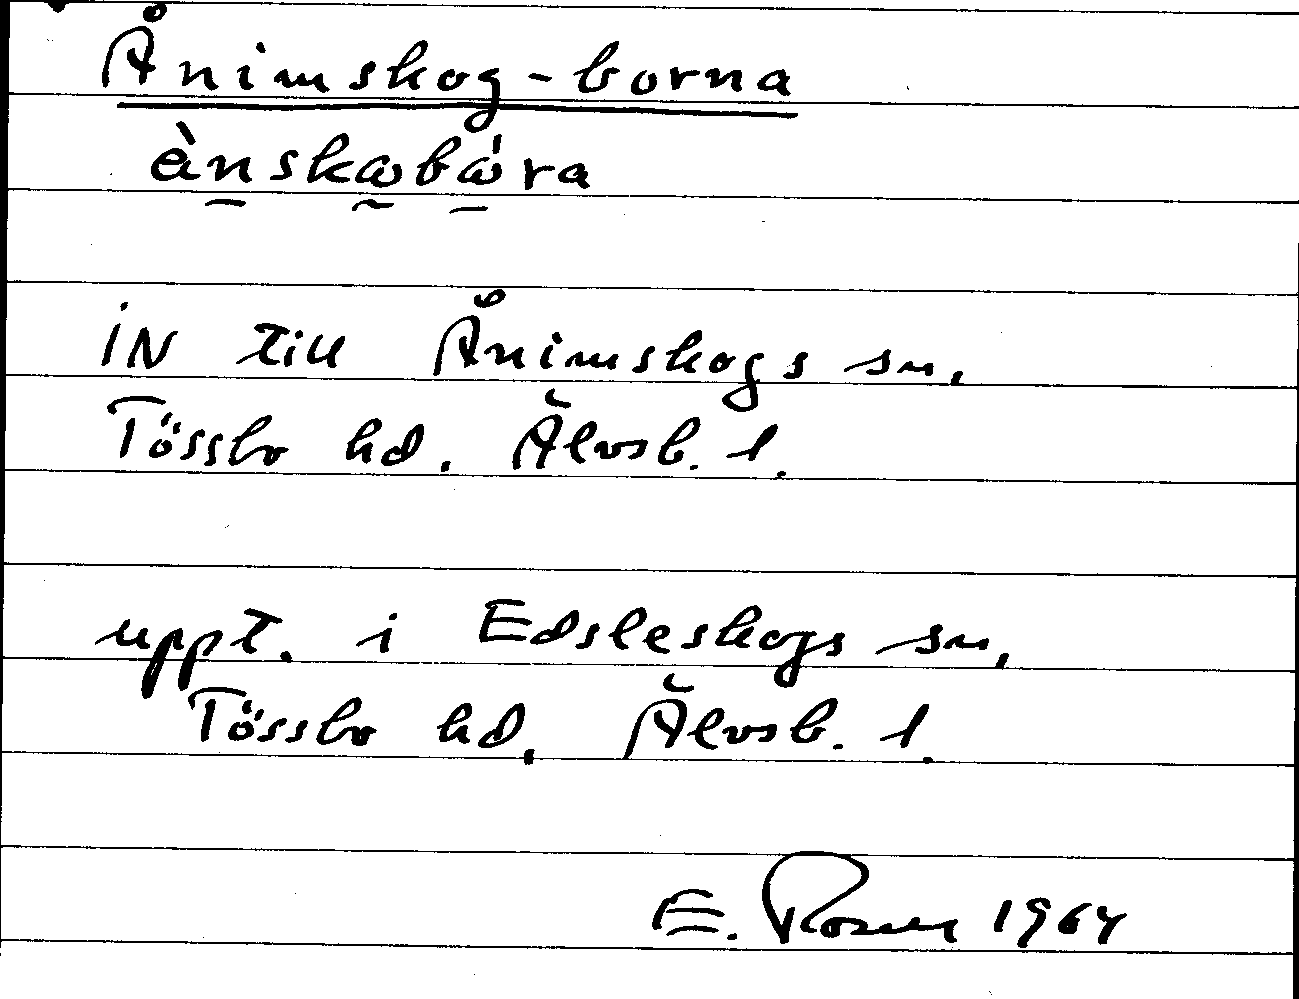 Ånimskog-borna
ènskabára
IN till Ånimskogs sn.
Tössbo hd. Älvsb. l.
uppt. i Edsleskogs sn.
Tössbo hd. Älvsb. l.
E. Rosen 1964